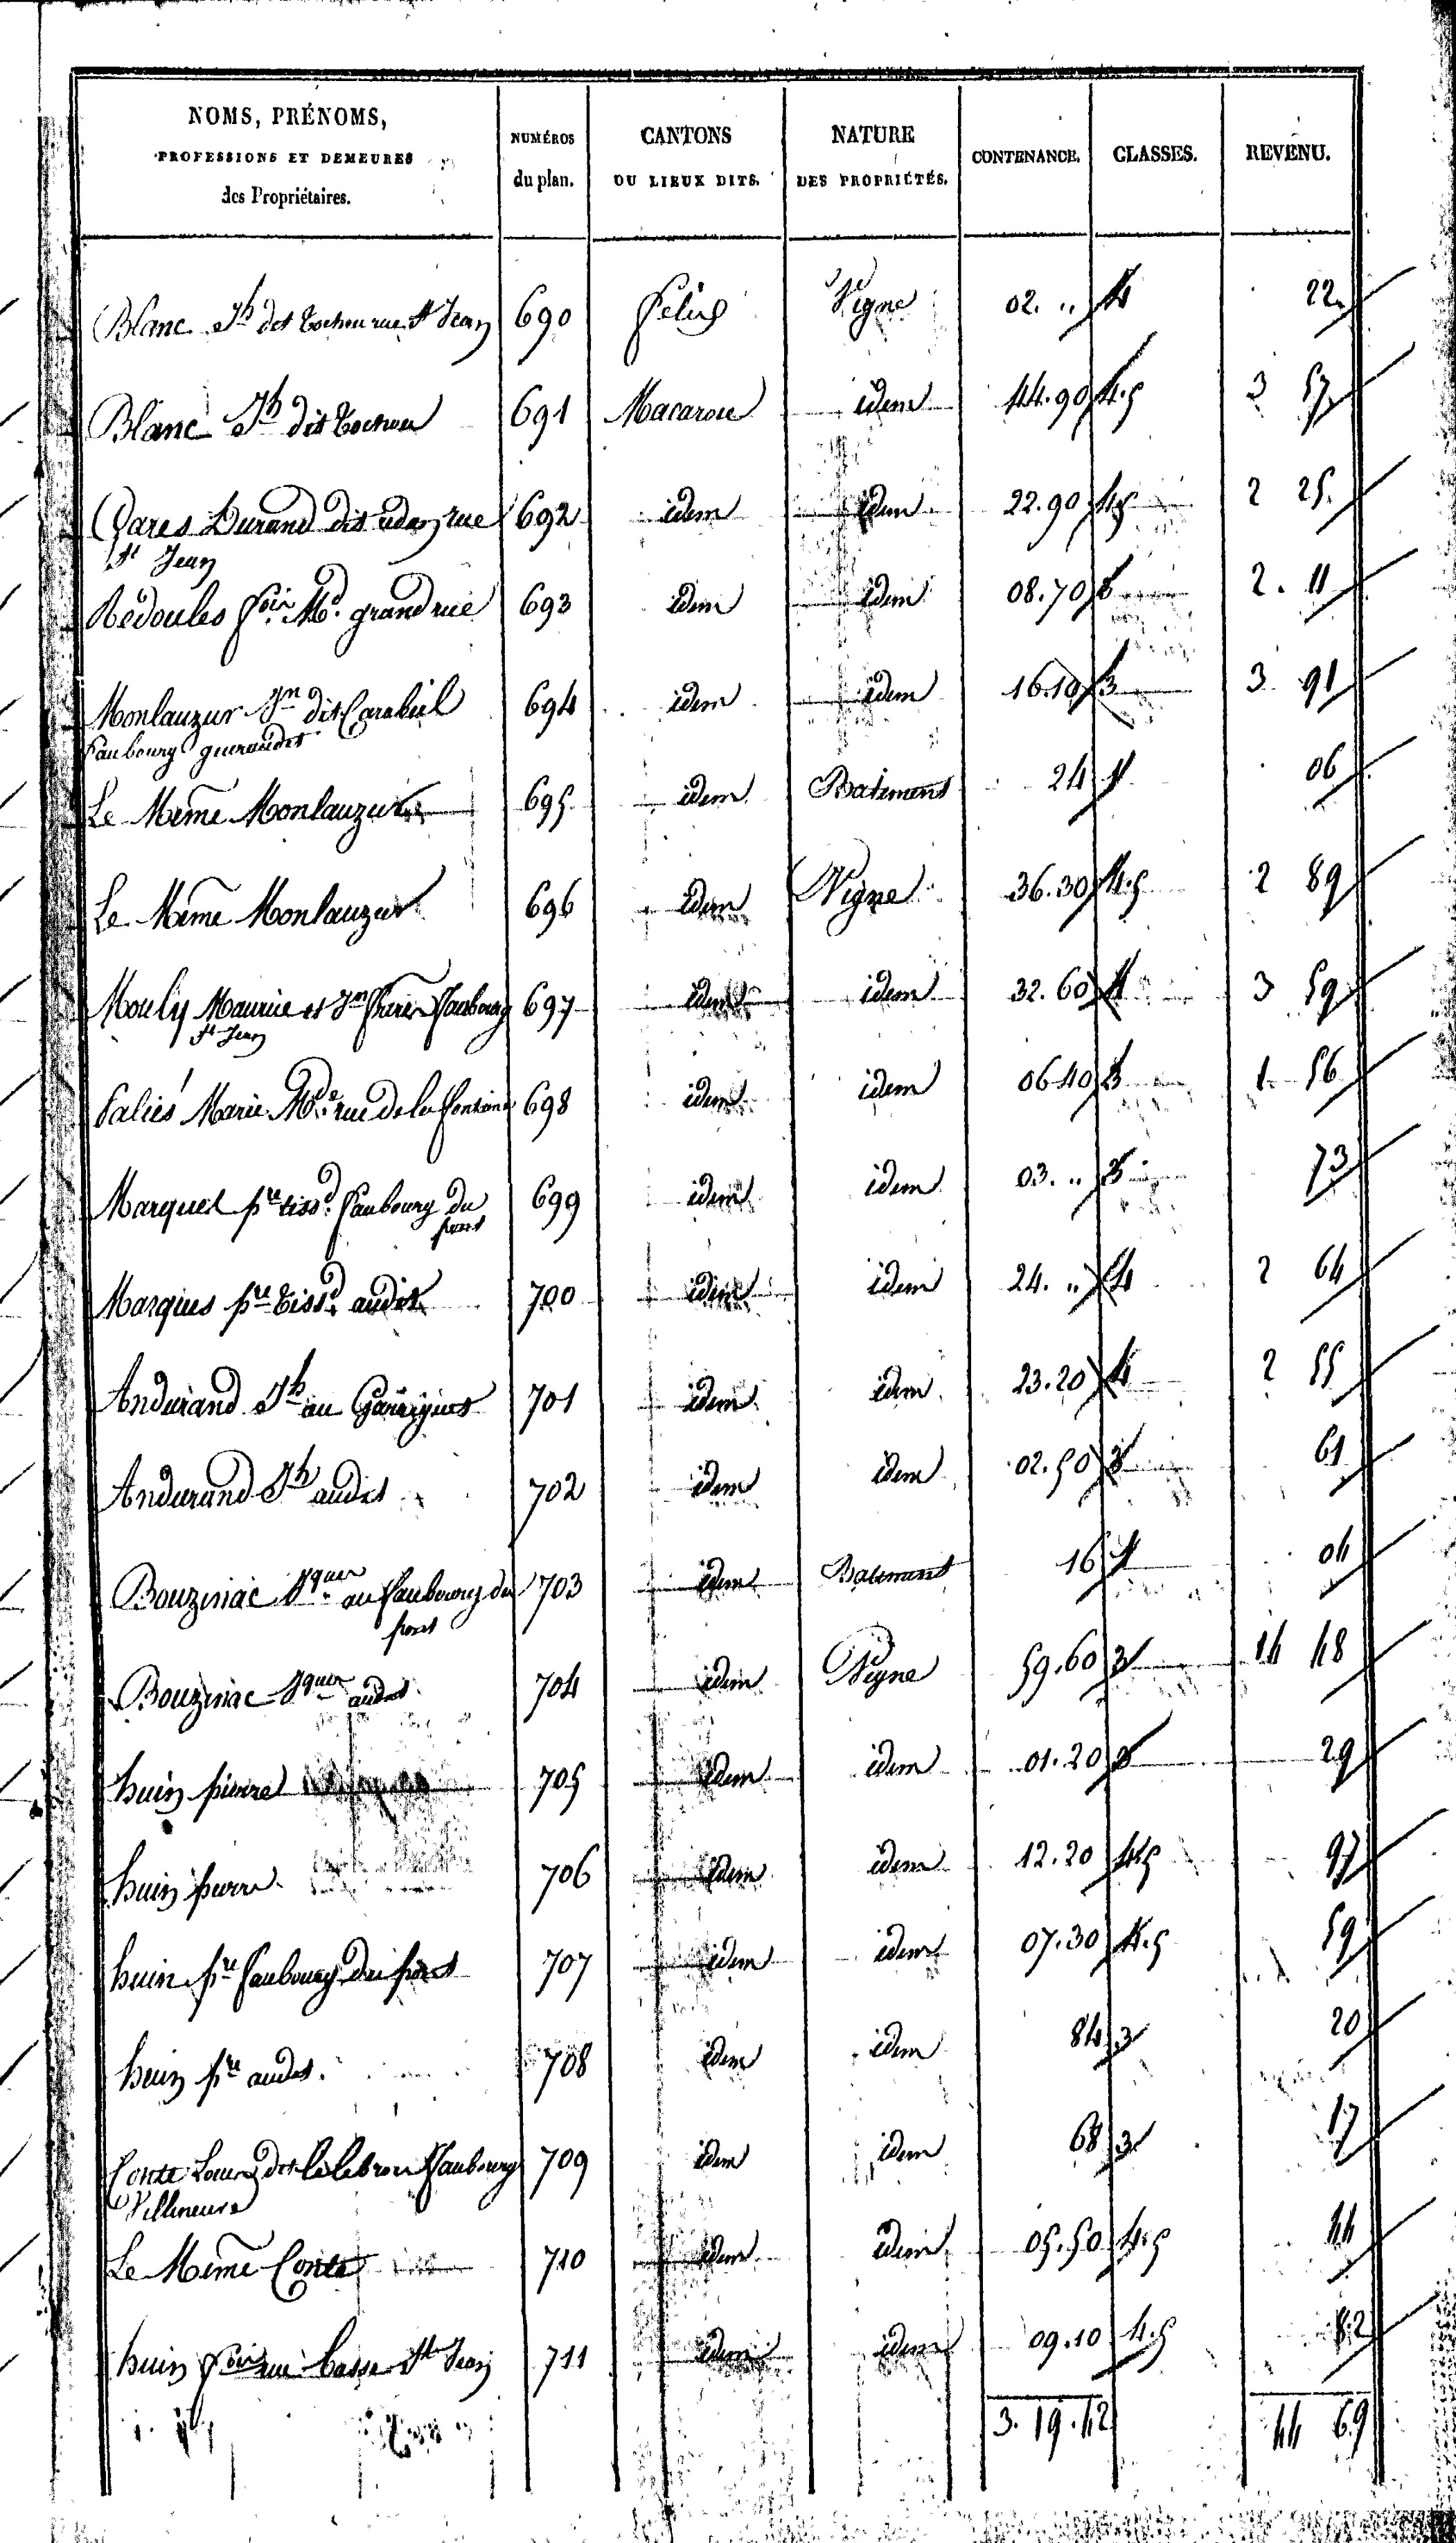 NOMS, PRÉNOMS,
PROFESSIONS ET DEMEURES
des Propriétaires.
NUMÉROS
du plan.
CANTONS
OU LIEUX DITS.
NATURE
DES PROPRIÉTÉS.
CONTENANCE.
CLASSES.
REVENU.
Blanc Jh dit Tochou rue St Jean 690 Vigne 02. „ 4 22
Blanc Jh dit Tochou 691 Macarou idem 44.90 4.5 3 57
Durand dit rue 692 idem idem 22.90 4.5 2 25
St Jean
Redoules fois Md. grand rue 693 idem idem 08.70 3 2. 11
Monlauzur Jn dit Carabiel 694 idem idem 16.10 3 3 91
faubourg guiraudet
Le Même Monlauzur 695 idem Batiment 24 1 06
Le Même Monlauzur 696 idem Vigne 36.30 4.5 2 89
Mouly Maurice et Jn frères faubourg 697 idem idem 32.60 4 3 59
St Jean
Faliés Marie Mde rue de la fontaine 698 idem idem 06.40 3 1 56
Marques pre tissd. faubourg du 699 idem idem 03. „ 3 73
pont
Marques pre tissd. audit 700 idem idem 24. „ 4 2 64
Andurand Jh au Garrigues 701 idem idem 23.20 4 2 55
Andurand Jh audit 702 idem idem 02.50 3 61
Bouziniac Jques au faubourg du 703 idem Batiment 16 1 04
pont
Bouziniac Jques audit 704 idem Vigne 59.60 3 14 48
huin pierre 705 idem idem 01.20 3 29
huin pierre 706 idem idem 12.20 4.5 97
huin pre faubourg du pont 707 idem idem 07.30 4.5 59
huin pre audit. 708 idem idem 84 3 20
Conte Louis dit faubourg 709 idem idem 68 3 17
Villeneuve
Le Même Conte 710 idem idem 05.50 4.5 44
huin fois rue basse St Jean 711 idem idem 09.10 4.5 82
3. 19. 42 44 69